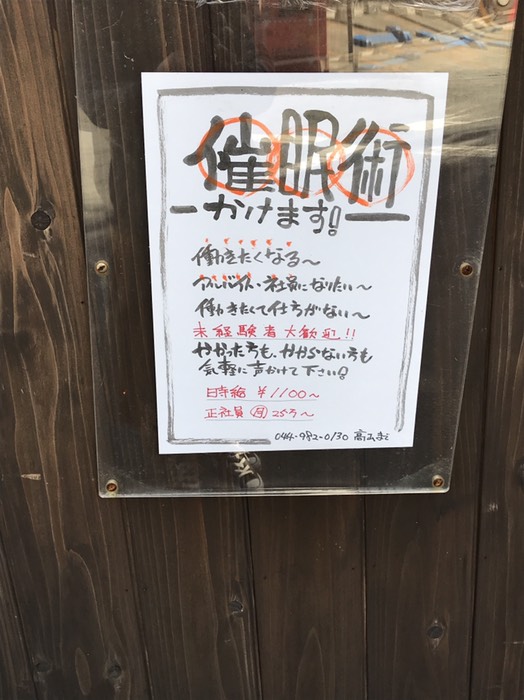 催眠術
－かけます!－
働きたくなる〜
アルバイト・社員になりたい〜
働きたくて仕方がない〜
未経験者大歓迎!!
かかった方も、かからない方も
気軽に声かけて下さい!
時給 ¥1100〜
正社員 ㊊25万〜
044-982-0130 高山まで